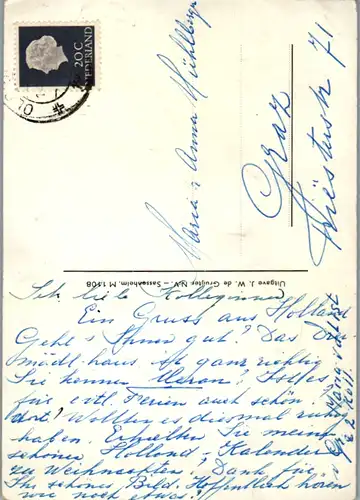 NEDERLAND
20 C
Maria & Anna
Graz
71
Uitgave J. W. de Gruyter N.V. – Sassenheim. M 1508
Ein Gruss aus Holland
Geht's Ihnen gut? Das Drei
mädlhaus ist ganz richtig
Sie kennen Meran? Ist es
für evtl. Ferien auch schön
dort? Wollten es diesmal
haben. Erhielten Sie meinen
schönen Holland-Kalender
zu Weihnachten? Dank für
Ihr schönes Bild. Hoffentlich hören
wir noch etwas!